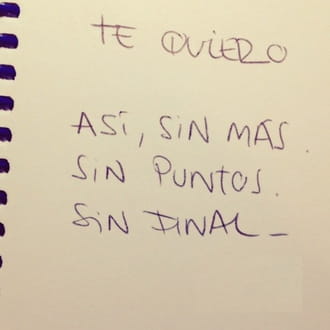 TE QUIERO
ASÍ, SIN MÁS.
SIN PUNTOS.
SIN DINAL_